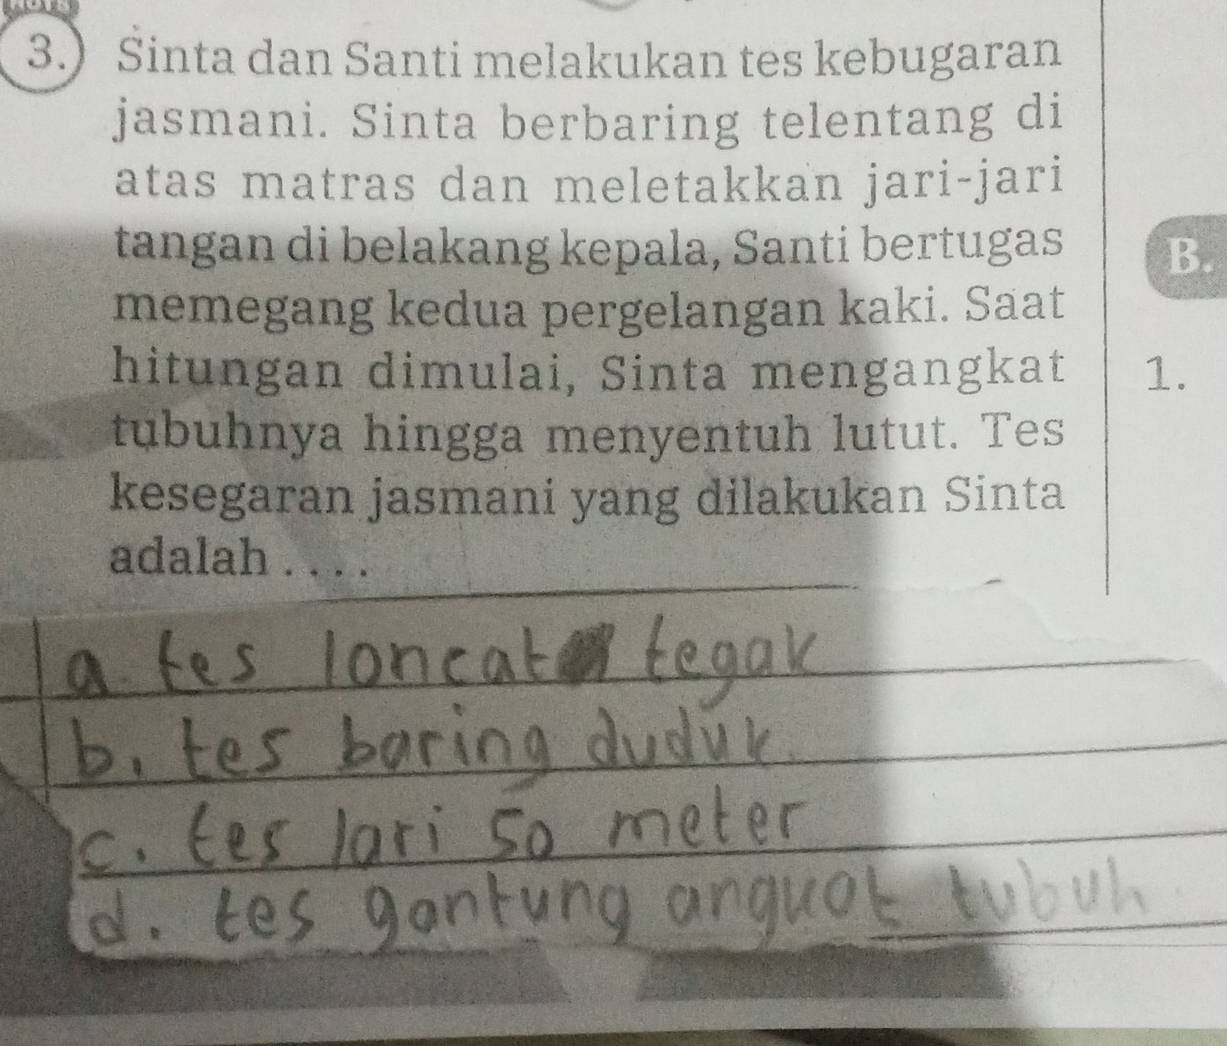 3. Sinta dan Santi melakukan tes kebugaran
jasmani. Sinta berbaring telentang di
atas matras dan meletakkan jari-jari
tangan di belakang kepala, Santi bertugas
memegang kedua pergelangan kaki. Saat
hitungan dimulai, Sinta mengangkat
tubuhnya hingga menyentuh lutut. Tes
kesegaran jasmani yang dilakukan Sinta
adalah . . . .
a. tes loncat tegak
b. tes baring duduk
c. tes lari 50 meter
d. tes gantung anguat tubuh
B.
1.